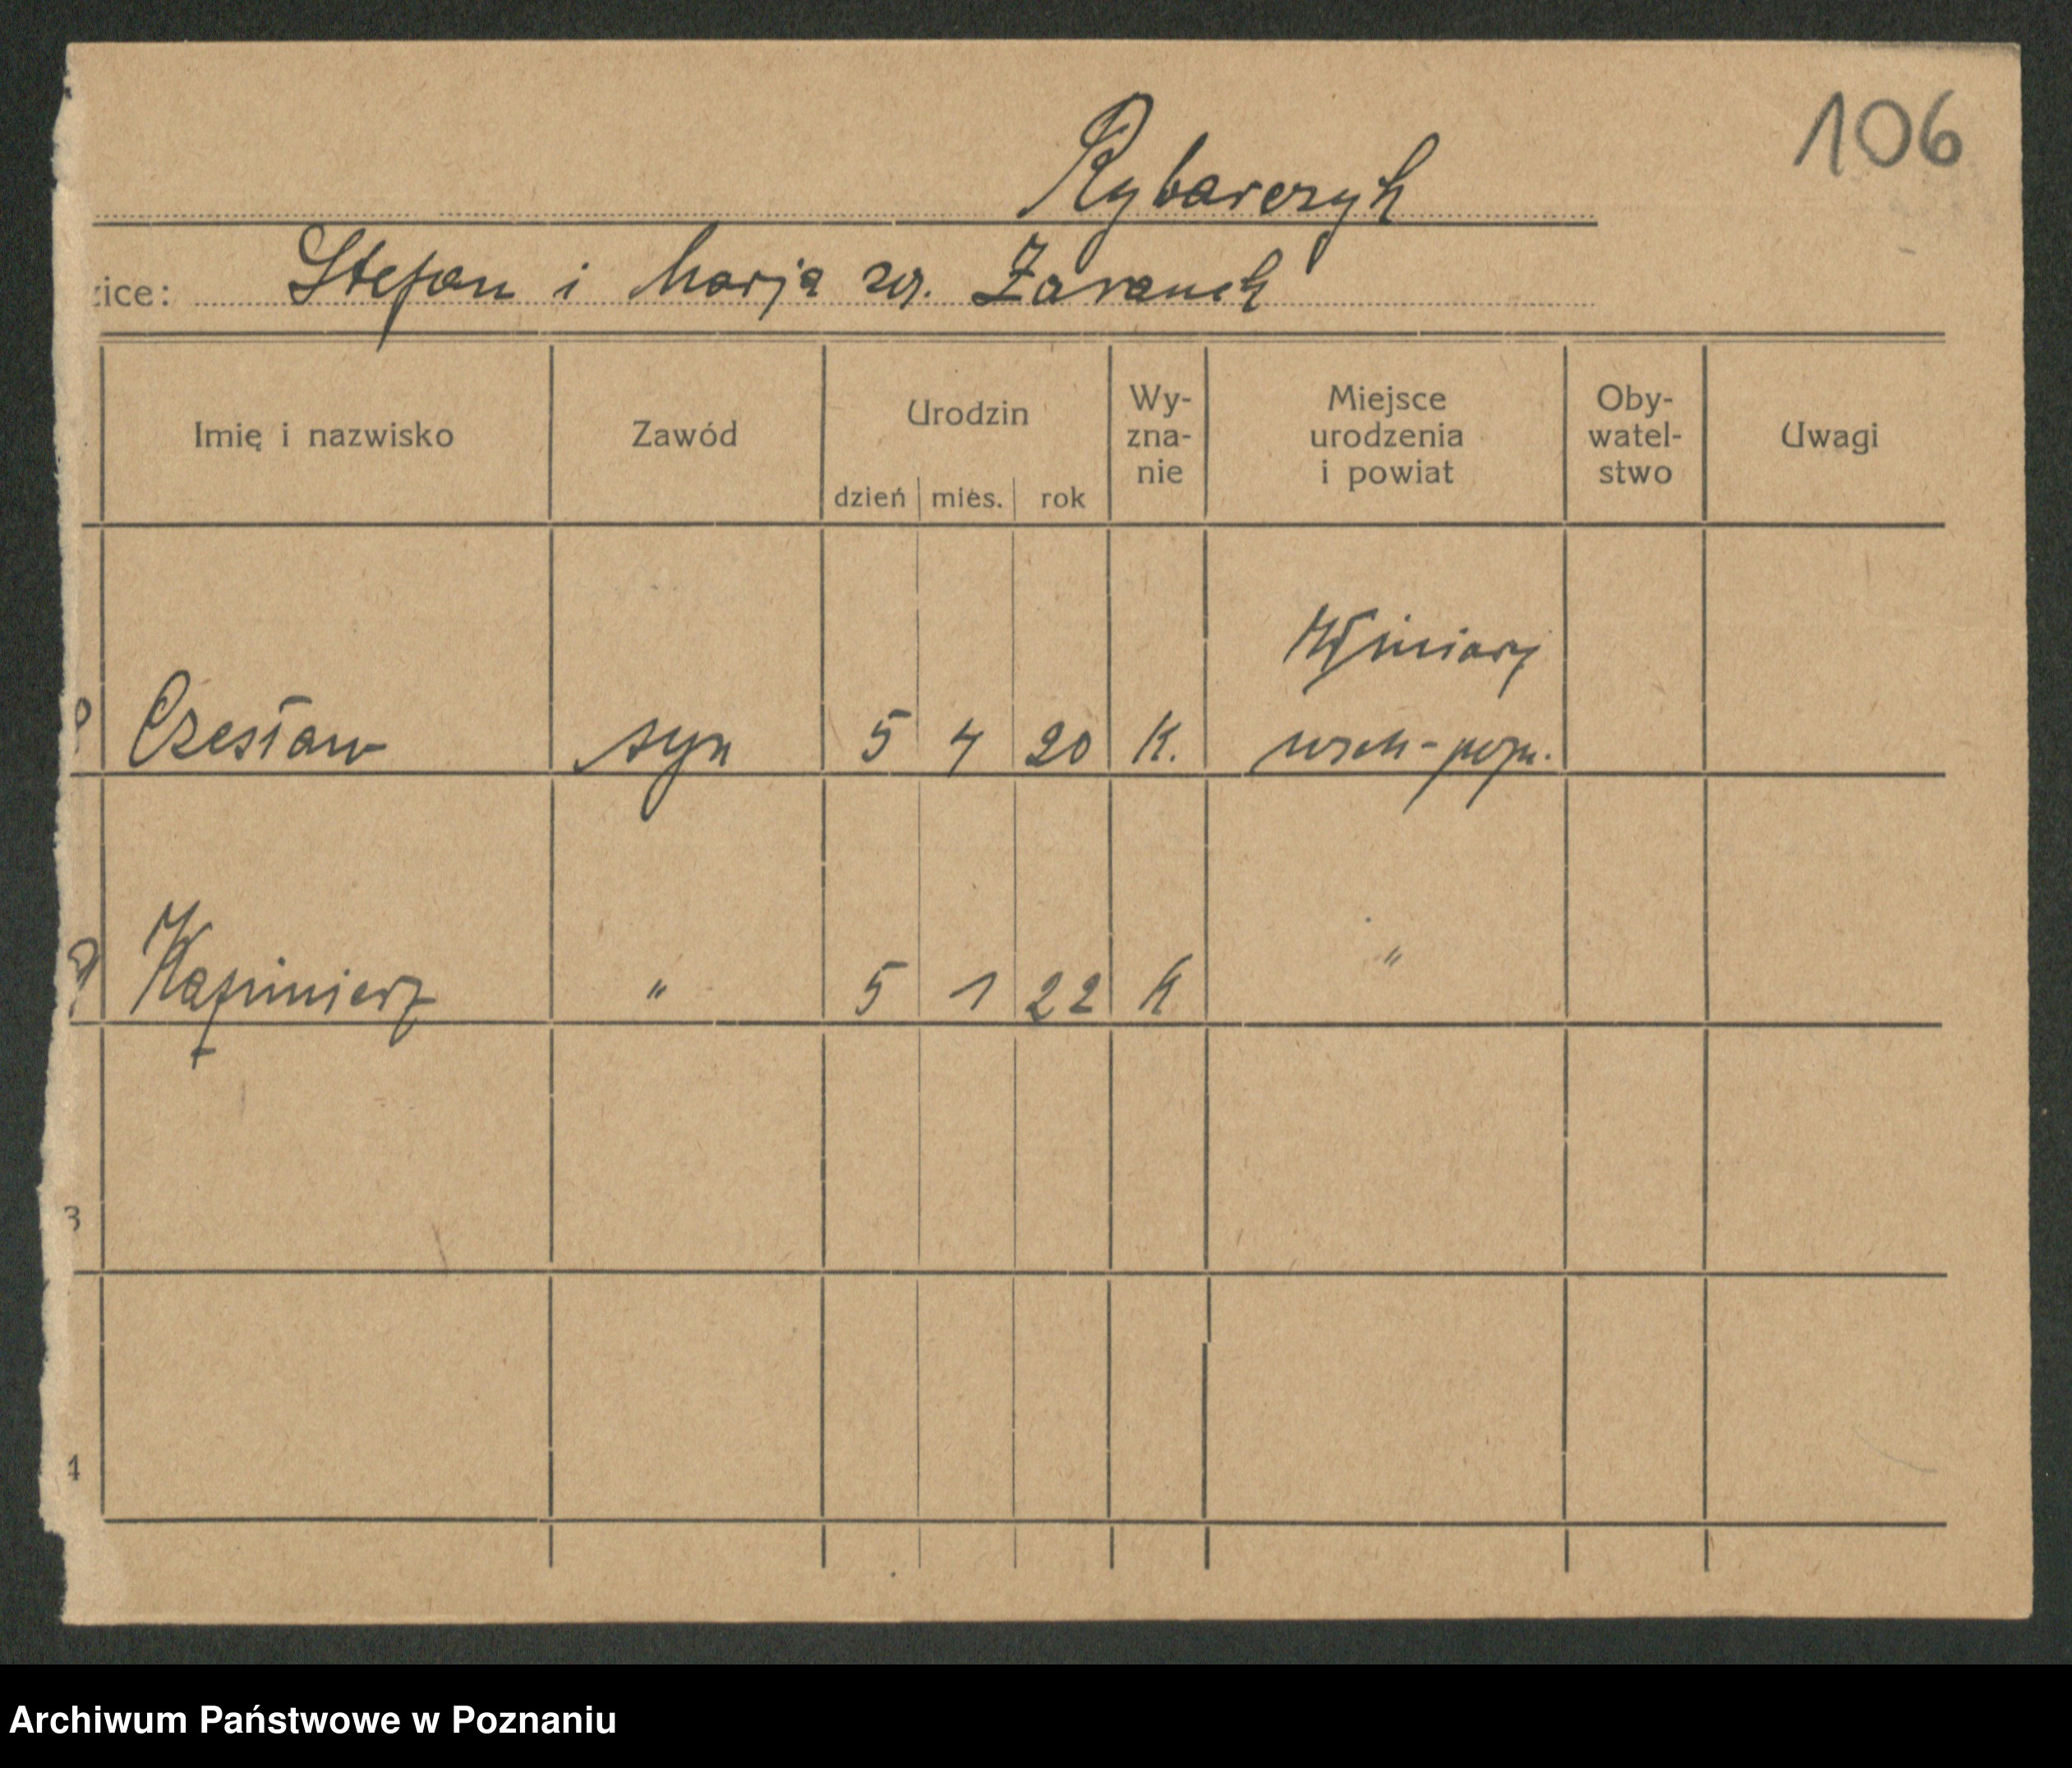 106
Rybarczyk
zice: Stefan i Marja zd. Żaranek
Imię i nazwisko
Zawód
Urodzin
dzień mies. rok
Wy-
zna-
nie
Miejsce
urodzenia
i powiat
Oby-
watel-
stwo
Uwagi
Winiary
Czesław syn 5 4 20 K. wsch-pozn.
Kazimierz " 5 1 22 K "
3
4
Archiwum Państwowe w Poznaniu